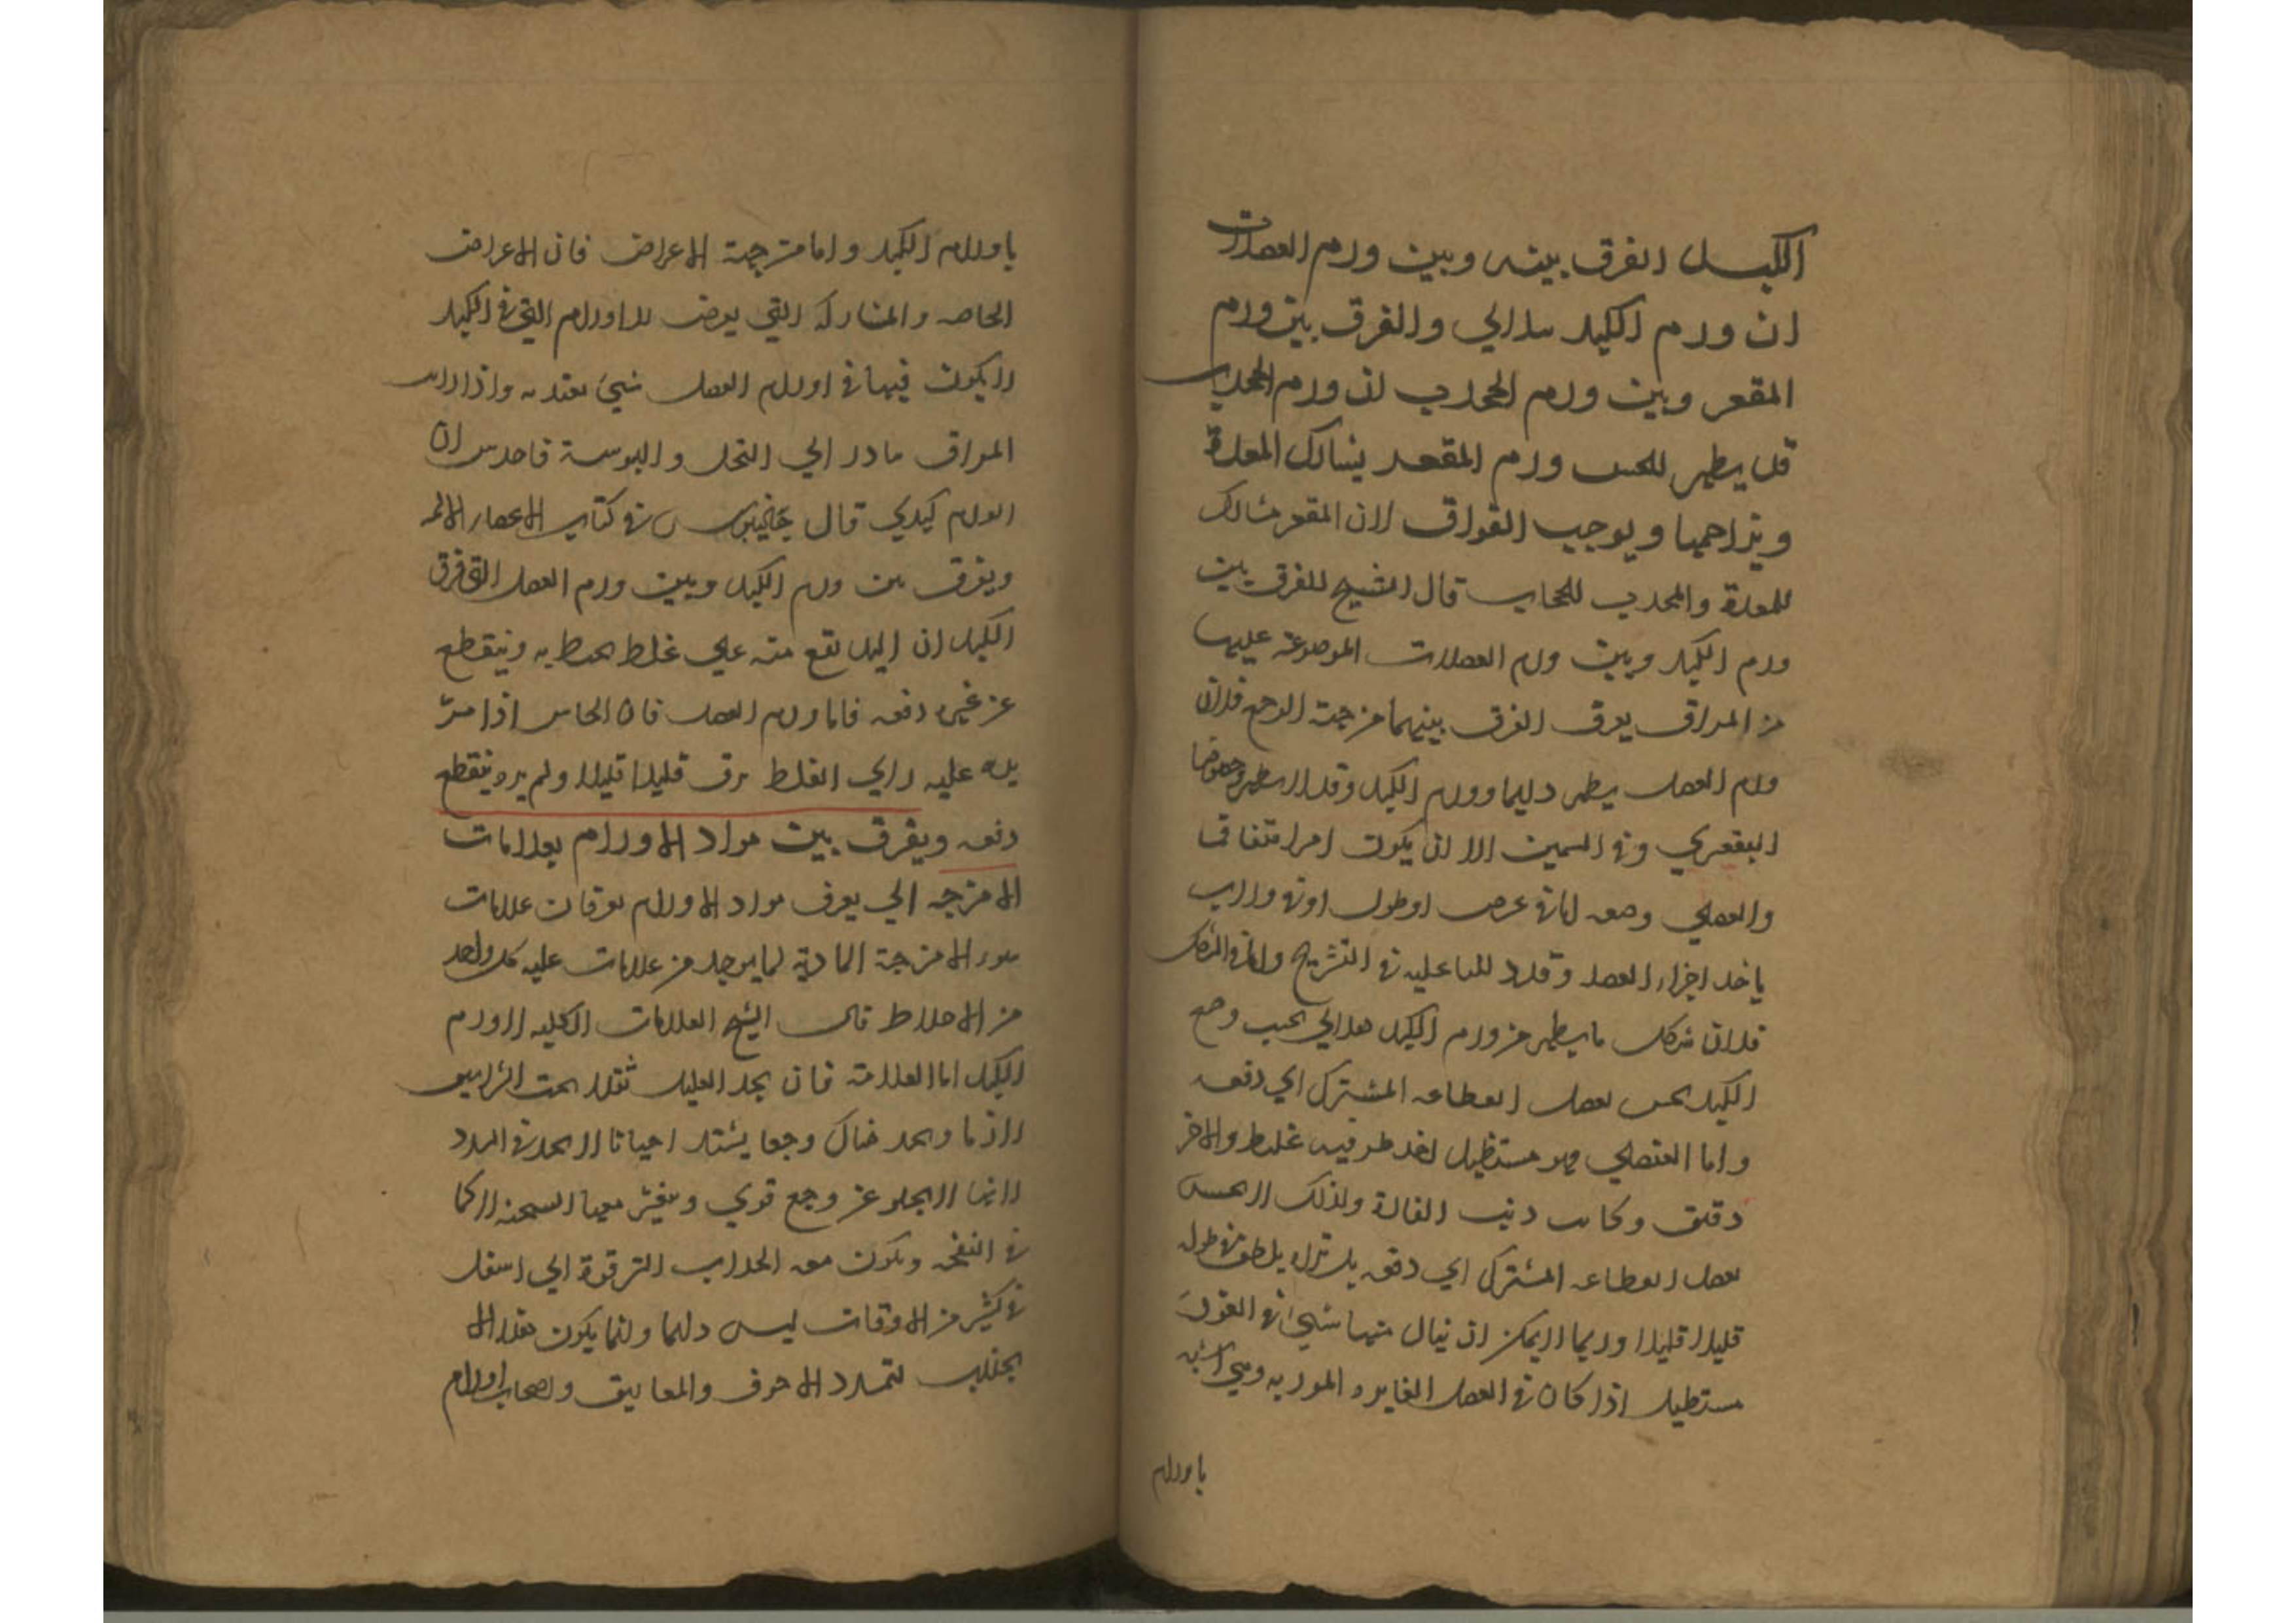 الكبد الفرق بينه وبين ورم العضلات
ان ورم الكبد هلالي والفرق بين ورم
المقعر وبين ورم المحدب ان ورم المحدب
قد يظهر للحس ورم المقعر يشارك المعدة
ويزاحمها ويوجب الفواق لان المقعر مشارك
للمعدة والمحدب للحجاب قال الشيخ للفرق بين
ورم الكبد وبين ورم العضلات الموضوعة عليها
من المراق يعرف الفرق بينهما من جهة الوضع فلان
ورم العضل يظهر دايما وورم الكبد وقد لا يظهر وخصوصا
التقعيري وفي السمين الا ان يكون امرا متفاقما
والعضلي وضعه اما في عرض او طول او في وراب
ياخد اجزاء العضل وقد دللنا عليه في التشريح واما في الشكل
فلان شكل ما يظهر من ورم الكبد هلالي بحسب وضع
الكبد يحس بفصل انقطاعه المشترك اي دفعه
واما العضلي فهو مستطيل احد طرفيه غليظ والاخر
دقيق وكانه ذنب الفارة ولذلك لا يحس
بفصل انقطاعه المشترك اي دفعه بل تراه يلطف في طوله
قليلا قليلا وربما لا يمكن ان ينال منها شيئ في الغور
مستطيل اذا كان في العضل الغايره الموربه وهي اشبه
باورام
باورام الكبد واما من جهة الاعراض فان الاعراض
الخاصه والمشاركة التي يعرض للاورام التي في الكبد
لا يكون فيها في اورام العضل شيئ يعتد به واذا رايت
المراق بادر الي القحل واليبوسة فاحدس ان
الورم كبدي قال جالينوس في كتاب الاعضاء الالمه
ويفرق بين ورم الكبد وبين ورم العضل التي فوق
الكبد ان اليد تقع منه علي غلظ يحيط به وينقطع
عن غيره دفعه فاما ورم العضل فان الحاس اذا مر
يده عليه راي الغلظ يرق قليلا قليلا ولم يره ينقطع
دفعه ويفرق بين مواد الاورام بعلامات
الامزجه اي يعرف مواد الاورام بعرفان علامات
سوء الامزجة المادية لما يوجد من علامات عليه كل واحد
من الاخلاط قال الشيخ العلامات الكليه لاورام
الكبد اما العلامة فان يجد العليل ثقلا تحت الشراسيف
لازما ويجد هناك وجعا يشتد احيانا لا يحد في السدد
لانها لا يخلو عن وجع قوي ويتغير معها السحنه لا كما
في النفخه ويكون معه انجداب الترقوة الي اسفل
في كثير من الاوقات ليس دايما وانما يكون هذا الا
نجداب لتمدد الاجوف والمعاليق واصحاب اورام